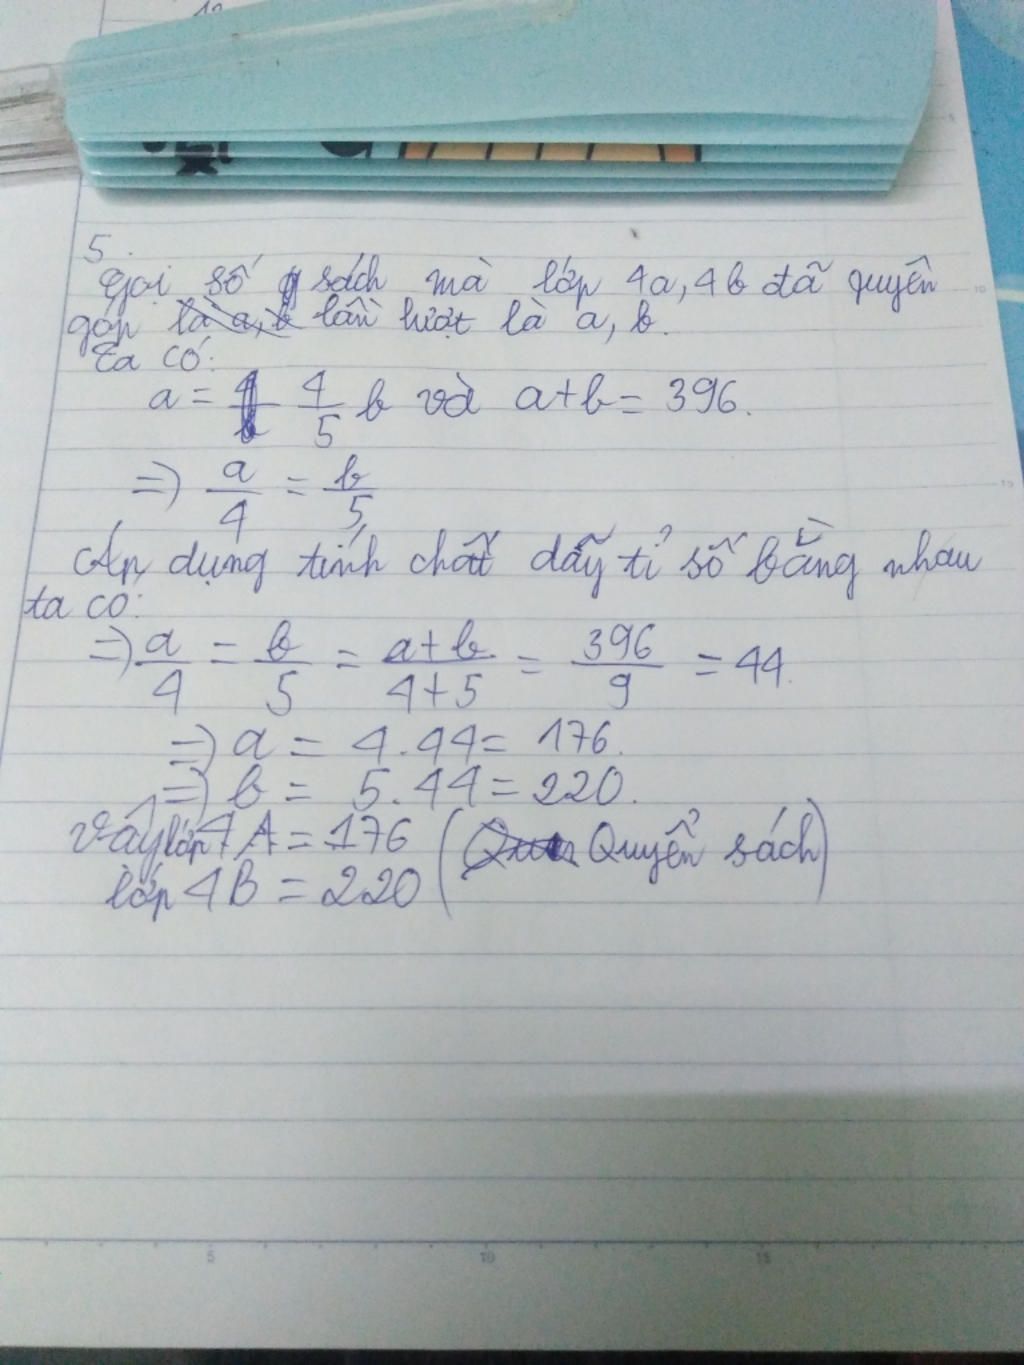 5.
Gọi số sách mà lớp 4a, 4b đã quyên
góp lần lượt là a, b.
Ta có:
a = 4/5 b và a+b = 396.
=> a/4 = b/5
Áp dụng tính chất dãy tỉ số bằng nhau
ta có:
=> a/4 = b/5 = a+b/4+5 = 396/9 = 44.
=> a = 4.44 = 176.
=> b = 5.44 = 220.
Vậy lớp 4A = 176 (Quyển sách)
lớp 4B = 220
5 10 15